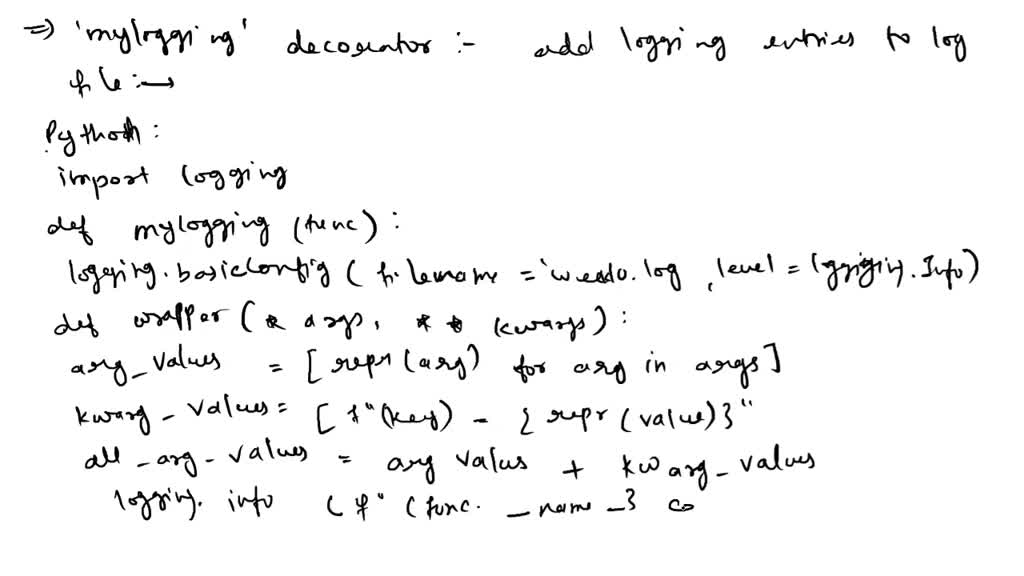 => 'mylogging' decorator :- add logging entries to log
file :→
Python :
import logging
def mylogging (func) :
logging.basicConfig ( filename = 'weedo.log , level = logging.Info)
def wrapper ( * args, * * kwargs) :
arg_values = [ repr (arg) for arg in args ]
kwarg_values = [ f" (key) - { repr (value) } "
all_arg_values = arg values + kwarg_values
logging. info ( f" (func. _name_} co